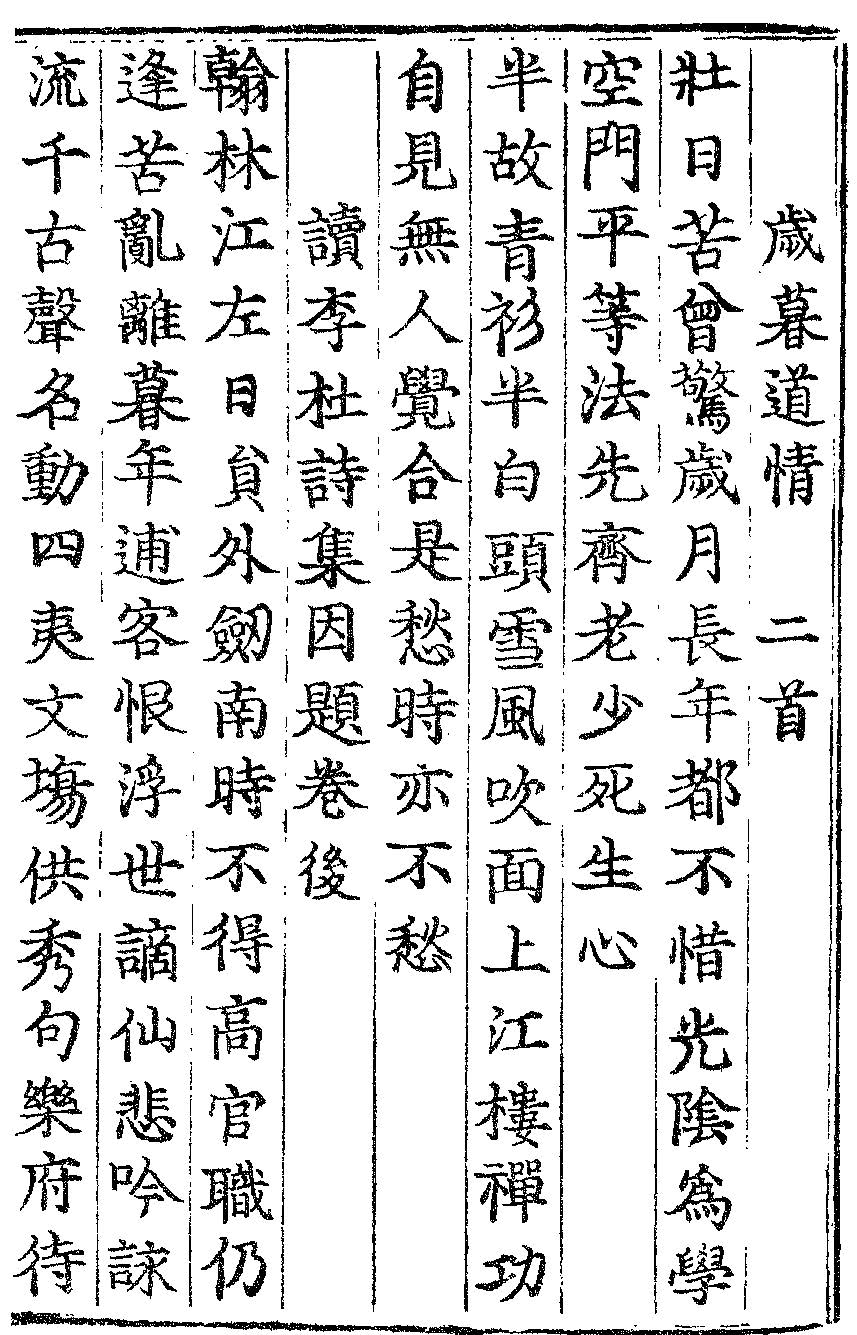 歲暮道情　二首
壯日苦曾驚歲月長年都不惜光陰為學
空門平等法先齊老少死生心
半故青衫半白頭雪風吹面上江樓禪功
自見無人覺合是愁時亦不愁
讀李杜詩集因題卷後
翰林江左日負外劒南時不得高官職仍
逢苦亂離暮年逋客恨浮世謫仙悲吟詠
流千古聲名動四夷文塲供秀句樂府待